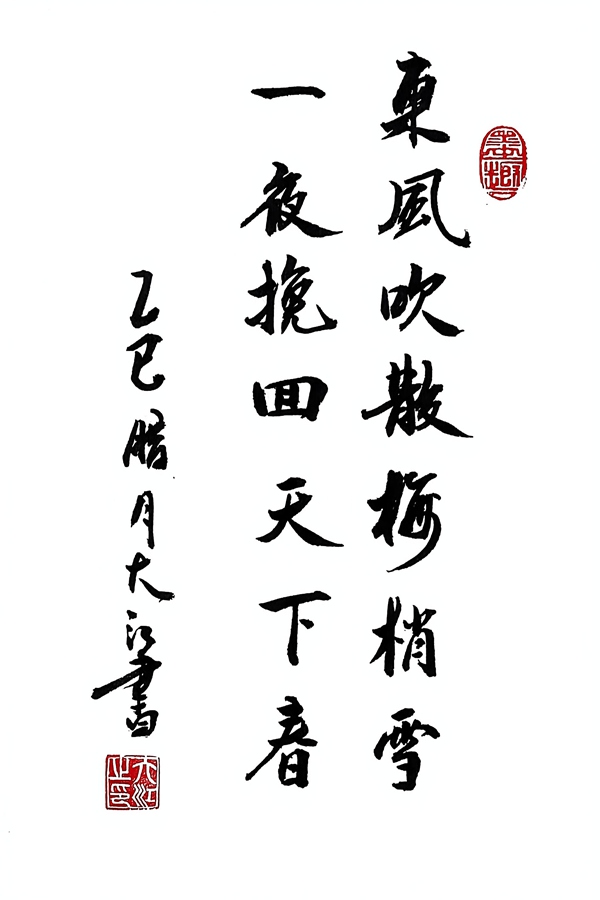 東風吹散梅梢雪
一夜挽回天下春
乙巳腊月大江書
大江之印